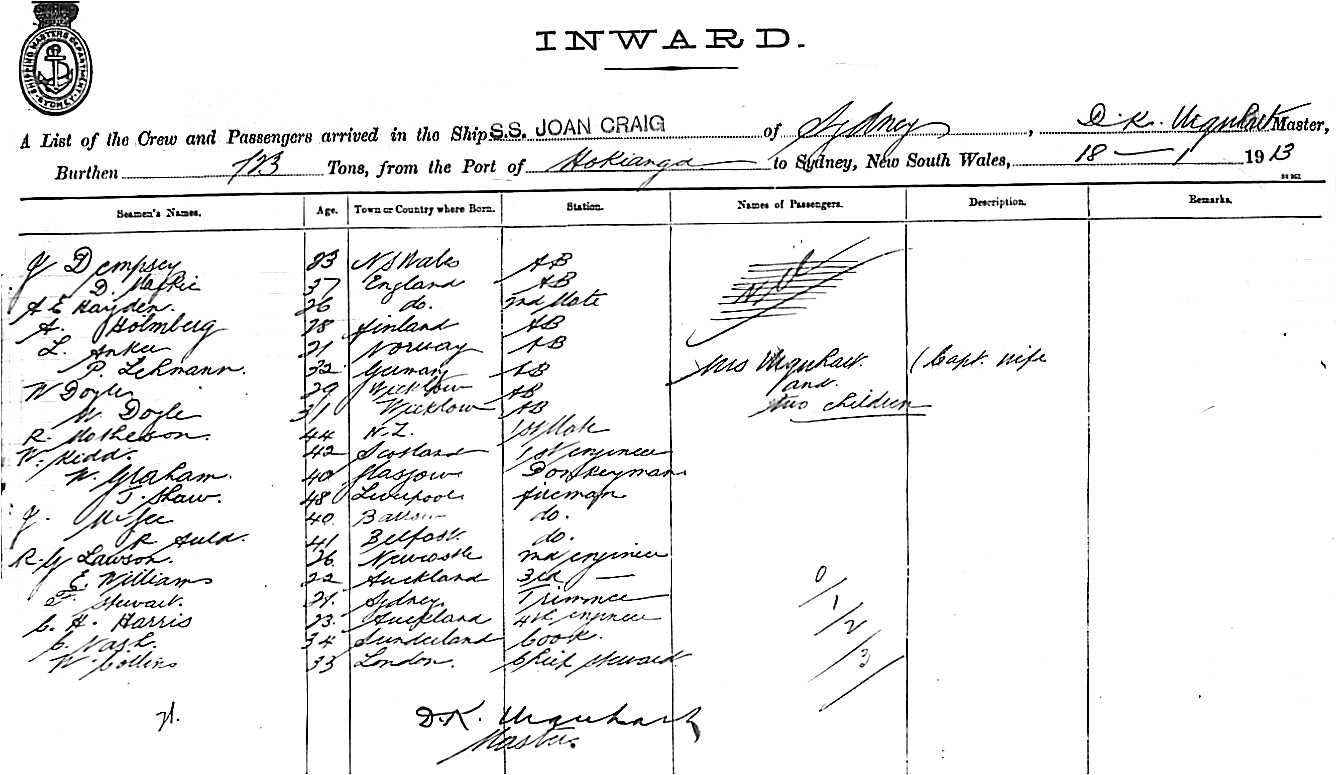 SHIPPING MASTERS DEPARTMENT SYDNEY
INWARD.
A List of the Crew and Passengers arrived in the Ship S.S. JOAN CRAIG of Sydney, D. K. Urquhart Master,
Burthen 723 Tons, from the Port of Hokianga to Sydney, New South Wales, 18 — 1 1913
Seamen's Names. Age. Town or Country where Born. Station. Names of Passengers. Description. Remarks.
J Dempsey 33 N S Wales AB Nil
D. 37 England AB
A E Hayden. 26 do. 2nd Mate
A. Holmberg 28 Finland AB
L. Anker 21 Norway AB
P. Lehmann. 32 Germany AB Mrs Urquhart (Capt. wife
W Doyle 29 Wicklow AB and
W. Doyle 31 Wicklow AB two children
R. Matheson. 44 N.Z. 1st Mate
W. Kidd. 42 Scotland 1st engineer
W. Graham. 40 Glasgow Donkeyman
J. Shaw. 48 Liverpool fireman
J. McFee 40 Barrow do.
R Auld. 41 Belfast do.
R. G Lawson. 26 Newcastle 2nd engineer
E. Williams 22 Auckland 3rd —
F. Stewart. 21. Sydney. Trimmer 0/1
C. H. Harris 23. Auckland 4th engineer 1/2
C. Nash. 34 Sunderland Cook.
W. Collins 33 London. Chief steward /3/
21. D. K. Urquhart
Master.